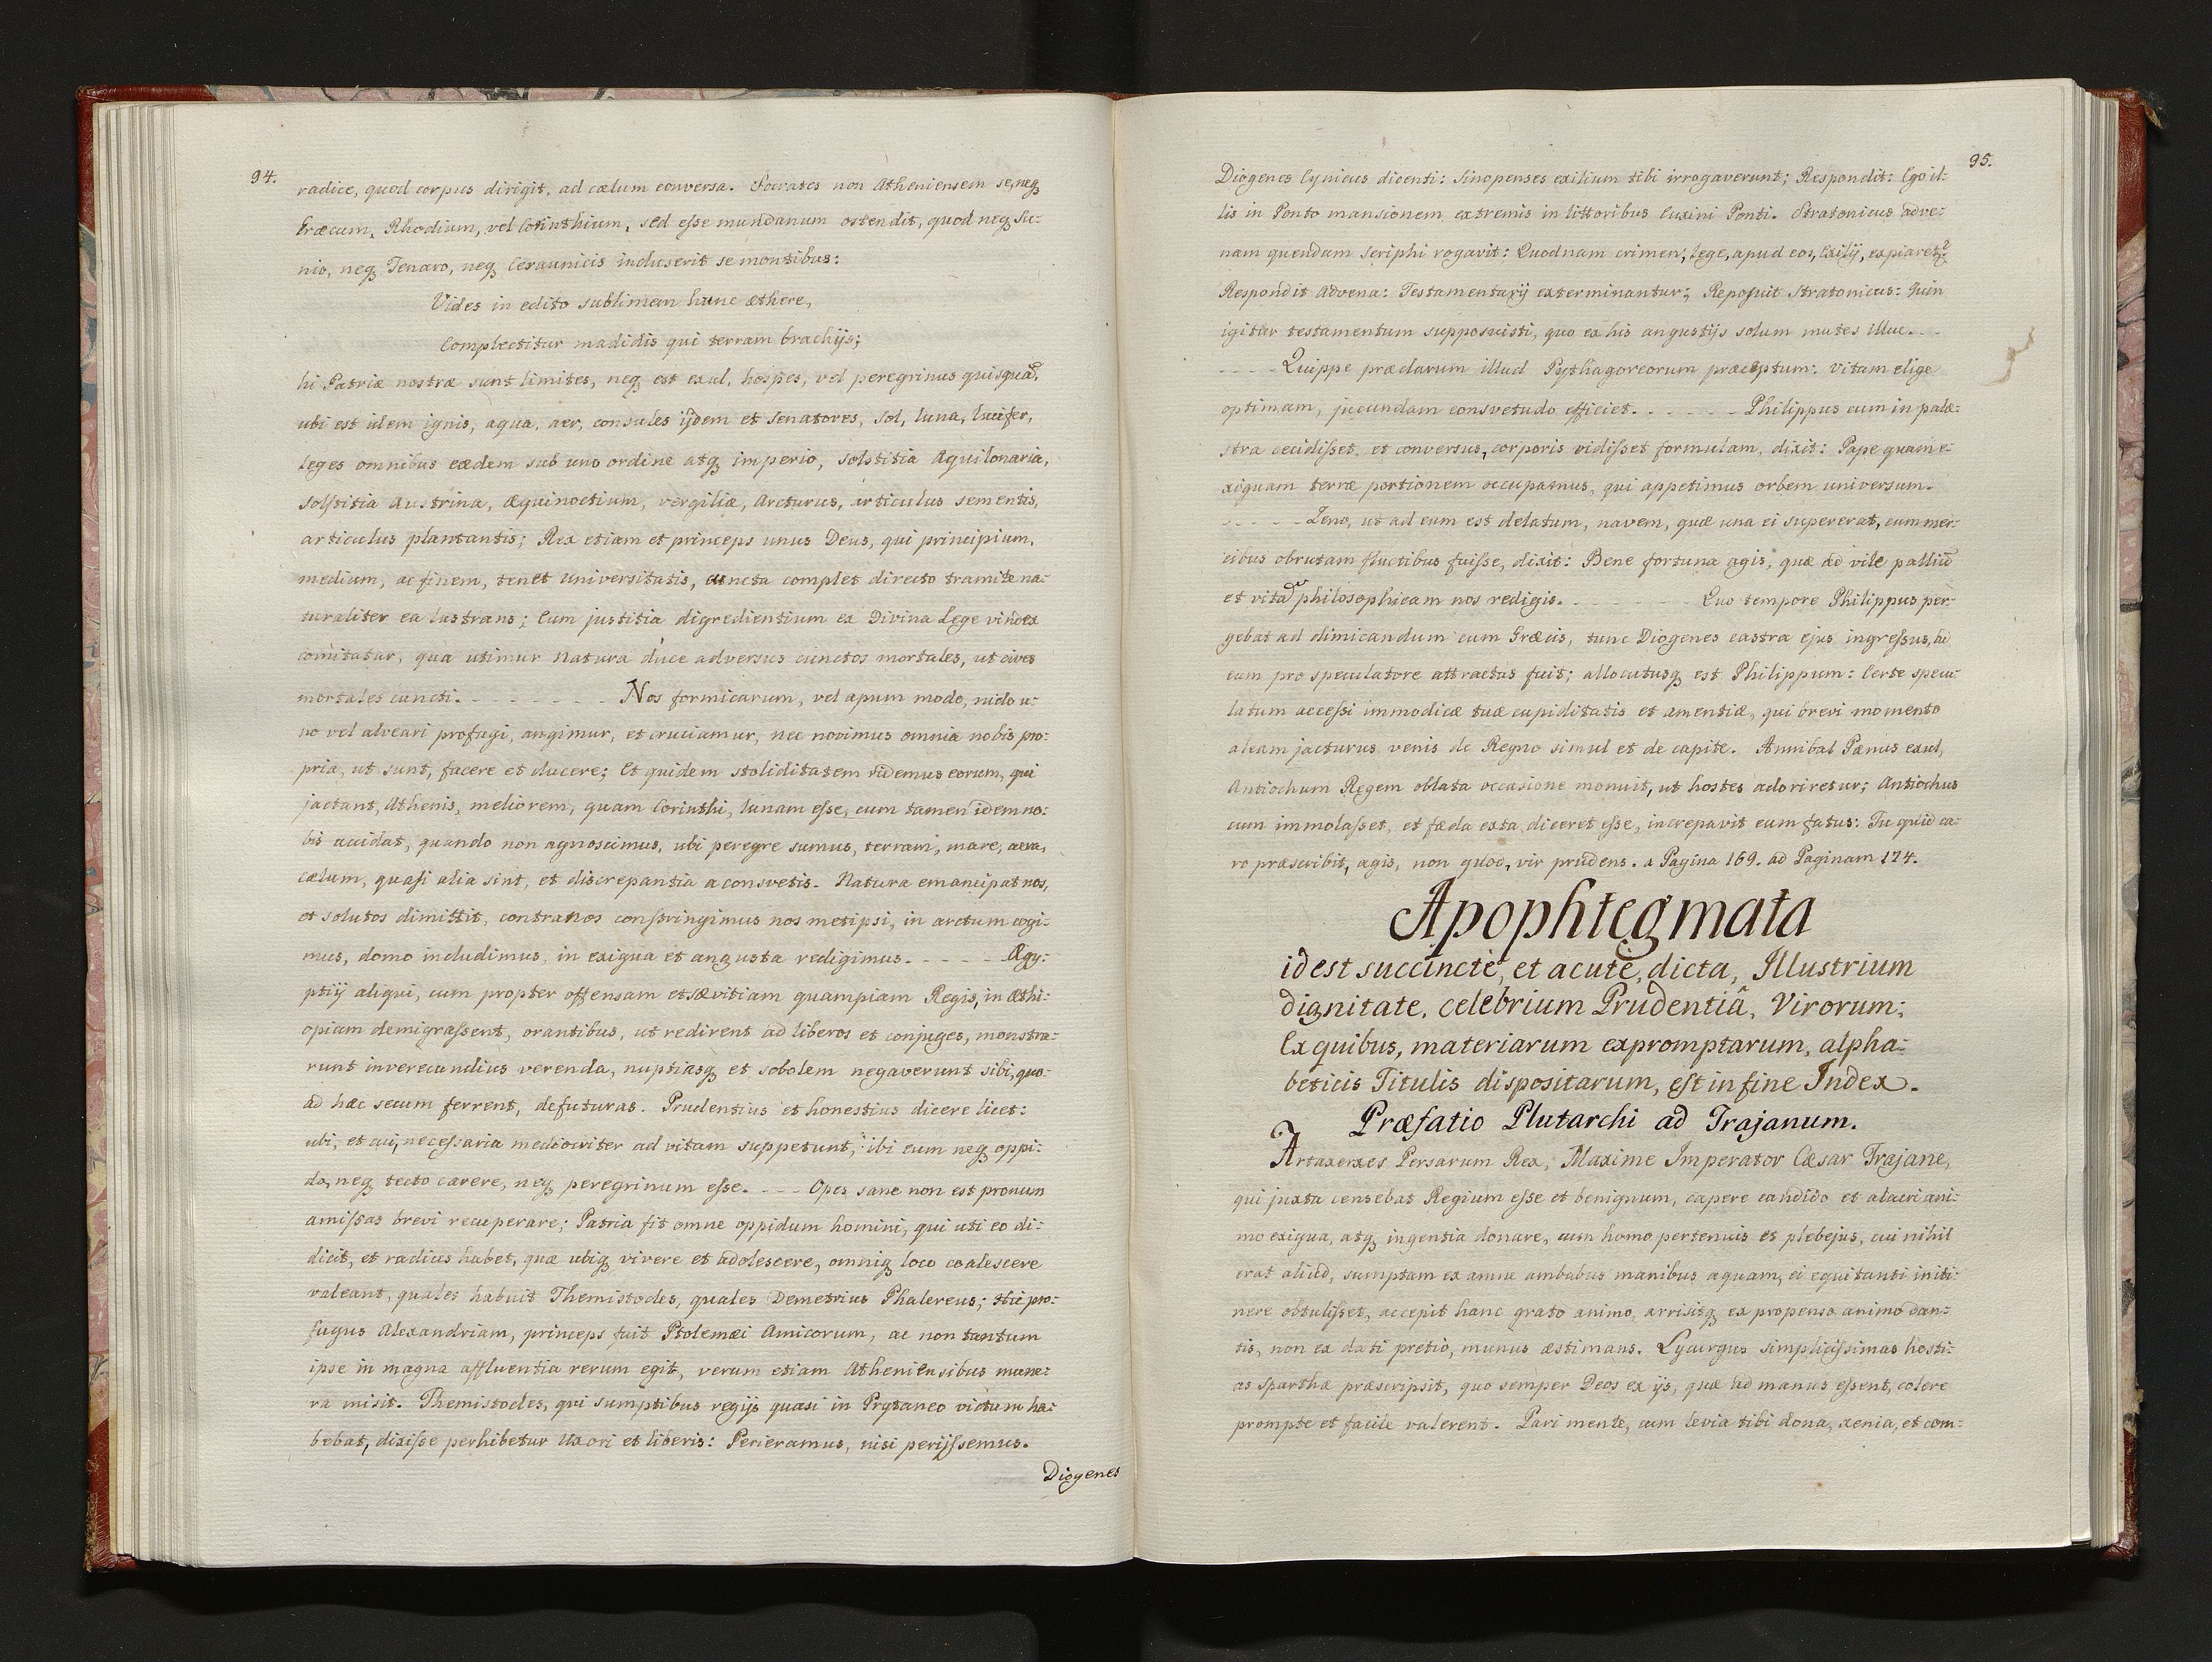 94.
radice, quod corpus dirigit, ad cælum conversa. Socrates non Atheniensem se, neq
Græcum, Rhodium, vel Corinthium, sed eſse mundanum ostendit, quod neq Su-
nio, neq Tenaro, neq Ceraunicis incluserit se montibus:
Vides in edito sublimen hunc æthere,
Complectitur madidis qui terram brachijs;
hi Patriæ nostræ sunt limites, neq est exul, hospes, vel peregrinus quisquã,
ubi est idem ignis, aqua, aer, consules ijdem et Senatores, Sol, Luna, Lucifer,
Leges omnibus eædem sub uno ordine atq imperio, solstitia Aquilonaria,
Solſtitia Austrina, Æquinoctium, vergiliæ, Arcturus, articulus sementis,
articulus plantantis; Rex etiam et princeps unus Deus, qui principium,
medium, ac finem, tenet Universitatis, cuncta complet directo tramite na-
turaliter ea lustrans; Eum justitia digredientium ex Divina Lege vindex
comitatur, qua utimur Natura duce adversus cunctos mortales, ut cives
mortales cuncti. - - - - - - - Nos formicarum, vel apum modo, nido u-
no vel alveari profugi, angimur, et cruciamur, nec novimus omnia nobis pro-
pria, ut sunt, facere et ducere; Et quidem stoliditatem ridemus eorum, qui
jactant, Athenis, meliorem, quam Corinthi, Lunam eſse, cum tamen idem no-
bis accidat, quando non agnoscimus, ubi peregre sumus, terram, mare, aera,
cælum, quaſi alia sint, et discrepantia a consvetis. Natura emancipat nos,
et solutos dimittit, contra nos conſtringimus nos metipsi, in arctum cogi-
mus, domo includimus, in exigua et angusta redigimus. - - - - - Ægy-
ptij aliqui, cum propter offensam et sævitiam quampiam Regis, in Æthi-
opiam demigraſsent, orantibus, ut redirent ad liberos et conjuges, monstra-
runt inverecundius verenda, nuptiasq et sobolem negaverunt sibi, quo-
ad hæc secum ferrent, defuturas. Prudentius et honestius dicere licet:
ubi, et cui, neceſsaria mediocriter ad vitam suppetunt, ibi eum neq oppi-
do, neq tecto carere, neq peregrinum eſse. - - - Opes sane non est pronum
amiſsas brevi recuperare; Patria fit omne oppidum homini, qui uti eo di-
dicit, et radices habet, quæ ubiq vivere et adolescere, omniq loco coalescere
valeant, quales habuit Themistocles, quales Demetrius Phalereus; Hic pro-
fugus Alexandriam, princeps fuit Ptolemæi Amicorum, ac non tantum
ipse in magna affluentia rerum egit, verum etiam Atheniensibus mune-
ra misit. Themistocles, qui sumptibus regijs quasi in Prytaneo victum ha-
bebat, dixiſse perhibetur Uxori et liberis: Perieramus, nisi perijſsemus.
Diogenes
95.
Diogenes Cynicus dicenti: Sinopenses exilium tibi irrogaverunt; Respondit: Ego il-
lis in Ponto mansionem extremis in littoribus Euxini Ponti. Stratonicus adve-
nam quendam Seriphi rogavit: Quodnam crimen, Lege, apud eos, Exilij, expiaret?
Respondit Advena: Testamentarij exterminantur; Reposuit Stratonicus: Quin
igitur testamentum supposuisti, quo ex his angustijs solum mutes illuc. - -
- - - - Quippe præclarum illud Pythagoreorum præceptum: Vitam elige
optimam, jucundam consvetudo efficiet. - - - - - - Philippus cum in palæ-
stra cecidiſset, et conversus, corporis vidiſset formulam, dixit: Pape quam e-
xiguam terræ portionem occupamus, qui appetimus orbem universum.
- - - - - Zeno, ut ad eum est delatum, navem, quæ una ei supererat, cum mer-
cibus obrutam fluctibus fuiſse, dixit: Bene fortuna agis, quæ ad vile palliũ
et vitã philosophicam nos redigis. - - - - - - - Quo tempore Philippus per-
gebat ad dimicandum cum Græcis, tunc Diogenes castra ejus ingreſsus, ad
eum pro speculatore attractus fuit; allocutusq est Philippum: Certe specu-
latum acceſsi immodicæ tuæ cupiditatis et amentiæ, qui brevi momento
aleam jacturus venis de Regno simul et de capite. Annibal Pænus exul,
Antiochum Regem oblata occasione monuit, ut hostes adoriretur; Antiochus
cum immolaſset, et fæda exta diceret eſse, increpavit eum fatus: Tu quid ca-
ro præscribit, agis, non quod, vir prudens. a Pagina 169. ad Paginam 174.
Apophtegmata
id est succinctè, et acutè, dicta, Illustrium
dignitate, celebrium Prudentiâ, Virorum;
Ex quibus, materiarum expromptarum, alpha-
beticis Titulis dispositarum, eſt in fine Index.
Præfatio Plutarchi ad Trajanum.
Artaxerxes Persarum Rex, Maxime Imperator Cæsar Trajane,
qui juxta censebat Regium esse et benignum, capere candido et alacri ani-
mo exigua, atq ingentia donare, cum homo pertenuis et plebejus, cui nihil
erat aliud, sumptam ex amne ambabus manibus aquam, ei equitanti in iti-
nere obtuliſset, accepit hanc grato animo, arrisitq ex propenso animo dan-
tis, non ex dati pretio, munus æstimans. Lycurgus simpliciſsimas hosti-
as Sparthæ præscripsit, quo semper Deos ex ijs, quæ ad manus eſsent, colere
prompte et facile valerent. Pari mente, cum levia tibi dona, xenia, et com-